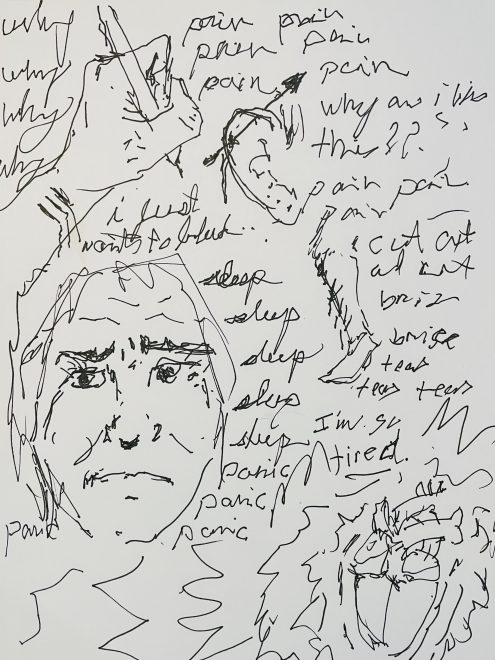 why
why
why
why
pain pain
pain pain
pain pain
why am i like
this???
pain pain
pain
i just
want to
cut cut
cut cut
bruise
tear
tear tear
sleep
sleep
sleep
sleep
sleep
I'm so
tired.
panic
panic
panic
panic